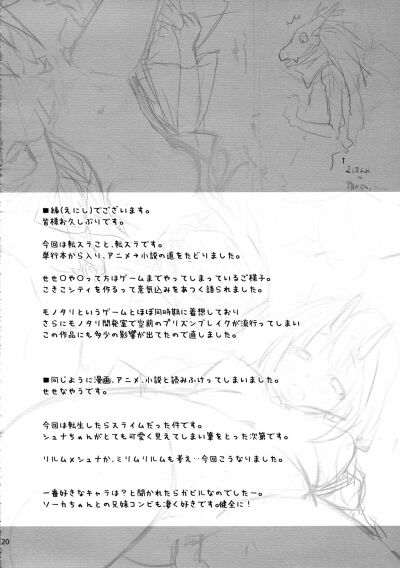 ■縁(えにし)でございます。
皆様お久しぶりです。
今回は転スラこと、転スラです。
単行本から入り、アニメ→小説の道をたどりました。
せせ〇や〇って方はゲームまでやってしまっているご様子。
こきこシティを作るって意気込みをあつく語られました。
モノタリというゲームとほぼ同時期に着想しており
さらにモノタリ開発室で空前のプリズンブレイクが流行ってしまい
この作品にも多少の影響が出てたので直しました。
■同じように漫画、アニメ、小説と読みふけってしまいました。
せせなやうです。
今回は転生したらスライムだった件です。
シュナちゃんがとても可愛く見えてしまい筆をとった次第です。
リルム×シュナか、ミリムリルムも考え‥今回こうなりました。
一番好きなキャラは?と聞かれたらガビルなのでしたー。
ソーカちゃんとの兄妹コンビも凄く好きです。健全に!
20